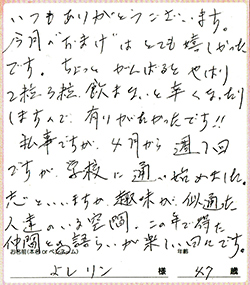 いつもありがとうございます。
今月の"おまけ"はとても嬉しかった
です。ちょっとがんばるとやはり
2粒、3粒、飲まないと辛くなったり
しますので、有りがたかったです!!
私事ですが、4月から週1回
ですが、学校に通い始めました。
志といいますか、趣味が似通った
人達のいる空間、この年で得た
仲間との語らいが楽しい日々です。
お名前(本名 or ペンネーム)
年齢
よしリン 様 47 歳